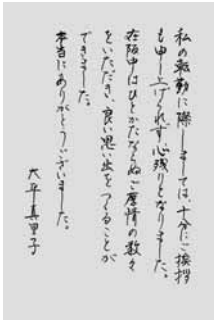 私の転勤に際しましては、十分にご挨拶
も申し上げられず、心残りとなりました。
在阪中はひとかたならぬご厚情の数々
をいただき、良い思い出をつくることが
できました。
本当にありがとうございました。
大平真里子